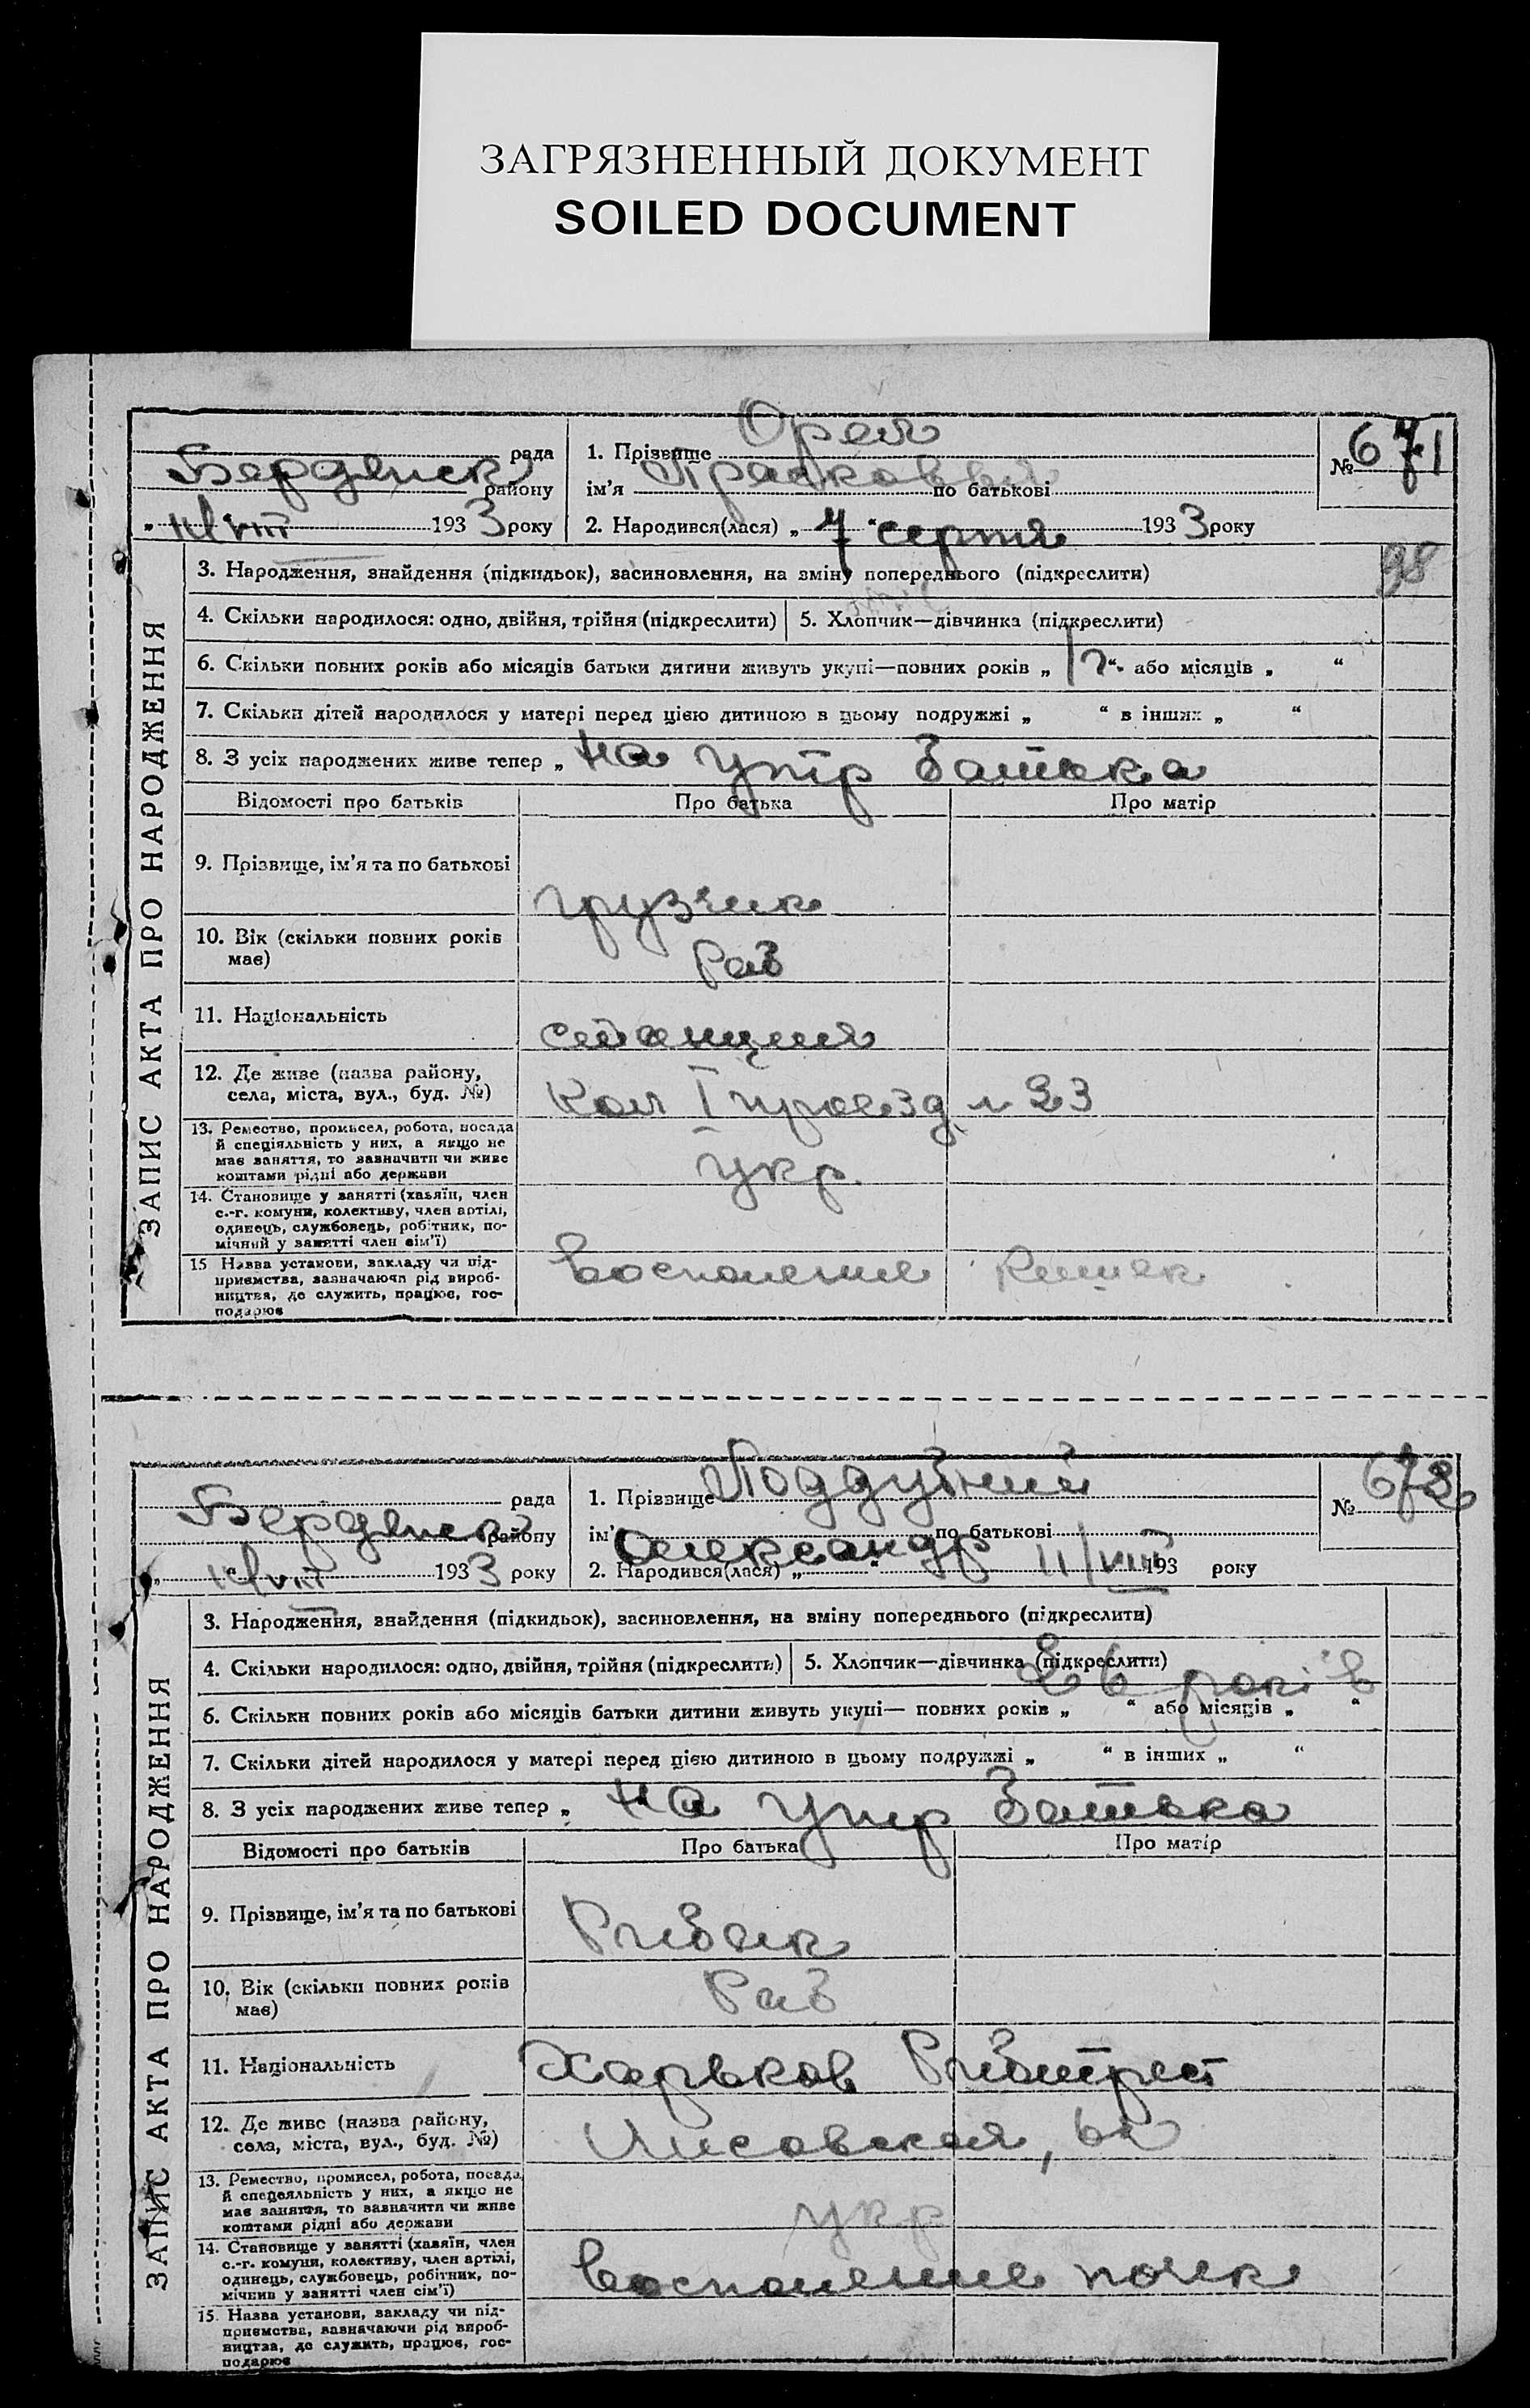 ЗАГРЯЗНЕННЫЙ ДОКУМЕНТ
SOILED DOCUMENT
ЗАПИС АКТА ПРО НАРОДЖЕННЯ
Бердянск рада
району
193 3 року
1. Прізвище Орел
ім’я Прасковья по батькові
2. Народився(лася) „ 7 “ серпня 193 3 року
№ 671
98
3. Народження, знайдення (підкидьок), засиновлення, на зміну попереднього (підкреслити)
4. Скільки народилося: одно, двійня, трійня (підкреслити)
5. Хлопчик—дівчинка (підкреслити)
6. Скільки повних років або місяців батьки дитини живуть укупі—повних років „ “ або місяців „ “
7. Скільки дітей народилося у матері перед цією дитиною в цьому подружжі „ “ в інших „ “
8. З усіх народжених живе тепер „ на утр батька
Відомості про батьків
Про батька
Про матір
9. Прізвище, ім’я та по батькові
грузчик
10. Вік (скільки повних років
має)
Раб
11. Національність
станция
12. Де живе (назва району,
села, міста, вул., буд. №)
Кол I проезд 23
13. Ремество, промисел, робота, посада
й спеціяльність у них, а якщо не
має заняття, то зазначити чи живе
коштами рідні або держави
укр.
14. Становище у занятті (хазяїн, член
с.-г. комуни, колективу, член артілі,
одинець, службовець, робітник, по-
мічний у занятті член сім’ї)
15 Назва установи, закладу чи під-
приємства, зазначаючи рід вироб-
ництва, де служить, працює, гос-
подарює
Восполение Кишек
ЗАПИС АКТА ПРО НАРОДЖЕННЯ
Бердянск рада
району
193 3 року
1. Прізвище Поддубний
ім’я Олександр по батькові
2. Народився(лася) „ “ 11/VIII 193 року
№ 672
3. Народження, знайдення (підкидьок), засиновлення, на зміну попереднього (підкреслити)
4. Скільки народилося: одно, двійня, трійня (підкреслить)
5. Хлопчик—дівчинка (підкреслити)
років
6. Скільки повних років або місяців батьки дитини живуть укупі— повних років „ “ або місяців „ “
7. Скільки дітей народилося у матері перед цією дитиною в цьому подружжі „ “ в інших „ “
8. З усіх народжених живе тепер „ на утр батька
Відомості про батьків
Про батька
Про матір
9. Прізвище, ім’я та по батькові
Рибак
10. Вік (скільки повних років
має)
Раб
11. Національність
Харьков Рибтрест
12. Де живе (назва району,
села, міста, вул., буд. №)
Лисовская,
13. Ремество, промисел, робота, посада
й спецеяльність у них, а якщо не
має заняття, то зазначити чи живе
коштами рідні або держави
укр
14. Становище у занятті (хазяїн, член
с.-г. комуни, колективу, член артілі,
одинець, службовець, робітник, по-
мічний у занятті член сім’ї)
Восполение почек
15. Назва установи, закладу чи під-
приємства, зазначаючи рід вироб-
ництва, де служить, працює, гос-
подарює